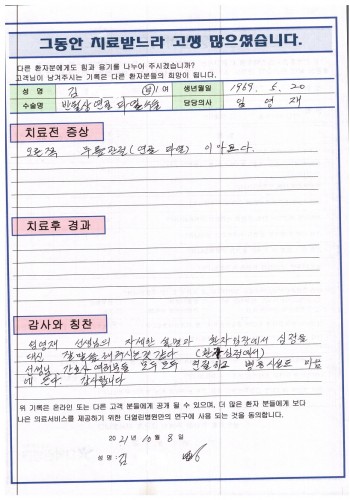 그동안 치료받느라 고생 많으셨습니다.
다른 환자분에게도 힘과 용기를 나누어 주시겠습니까?
고객님이 남겨주시는 기록은 다른 환자분들의 희망이 됩니다.
성 명 김 남 / 여 생년월일 1969. 5. 20
수술명 반월상 연골 파열 수술 담당의사 임 영 재
치료전 증상
오른쪽 무릎관절(연골 파열) 이 아프다.
치료후 경과
감사와 칭찬
임영재 선생님의 자세한 설명과 환자입장에서 심정을
대신 잘 말씀해 주시는것 같다 (환자 입장에서)
선생님, 간호사 여러분들 모두 모두 친절하고 병원시설도 마음
에 든다. 감사합니다
위 기록은 온라인 또는 다른 고객 분들에게 공개 될 수 있으며, 더 많은 환자 분들에게 보다
나은 의료서비스를 제공하기 위한 더열린병원만의 연구에 사용 되는 것을 동의합니다.
2021년 10월 8일
성 명 : 김